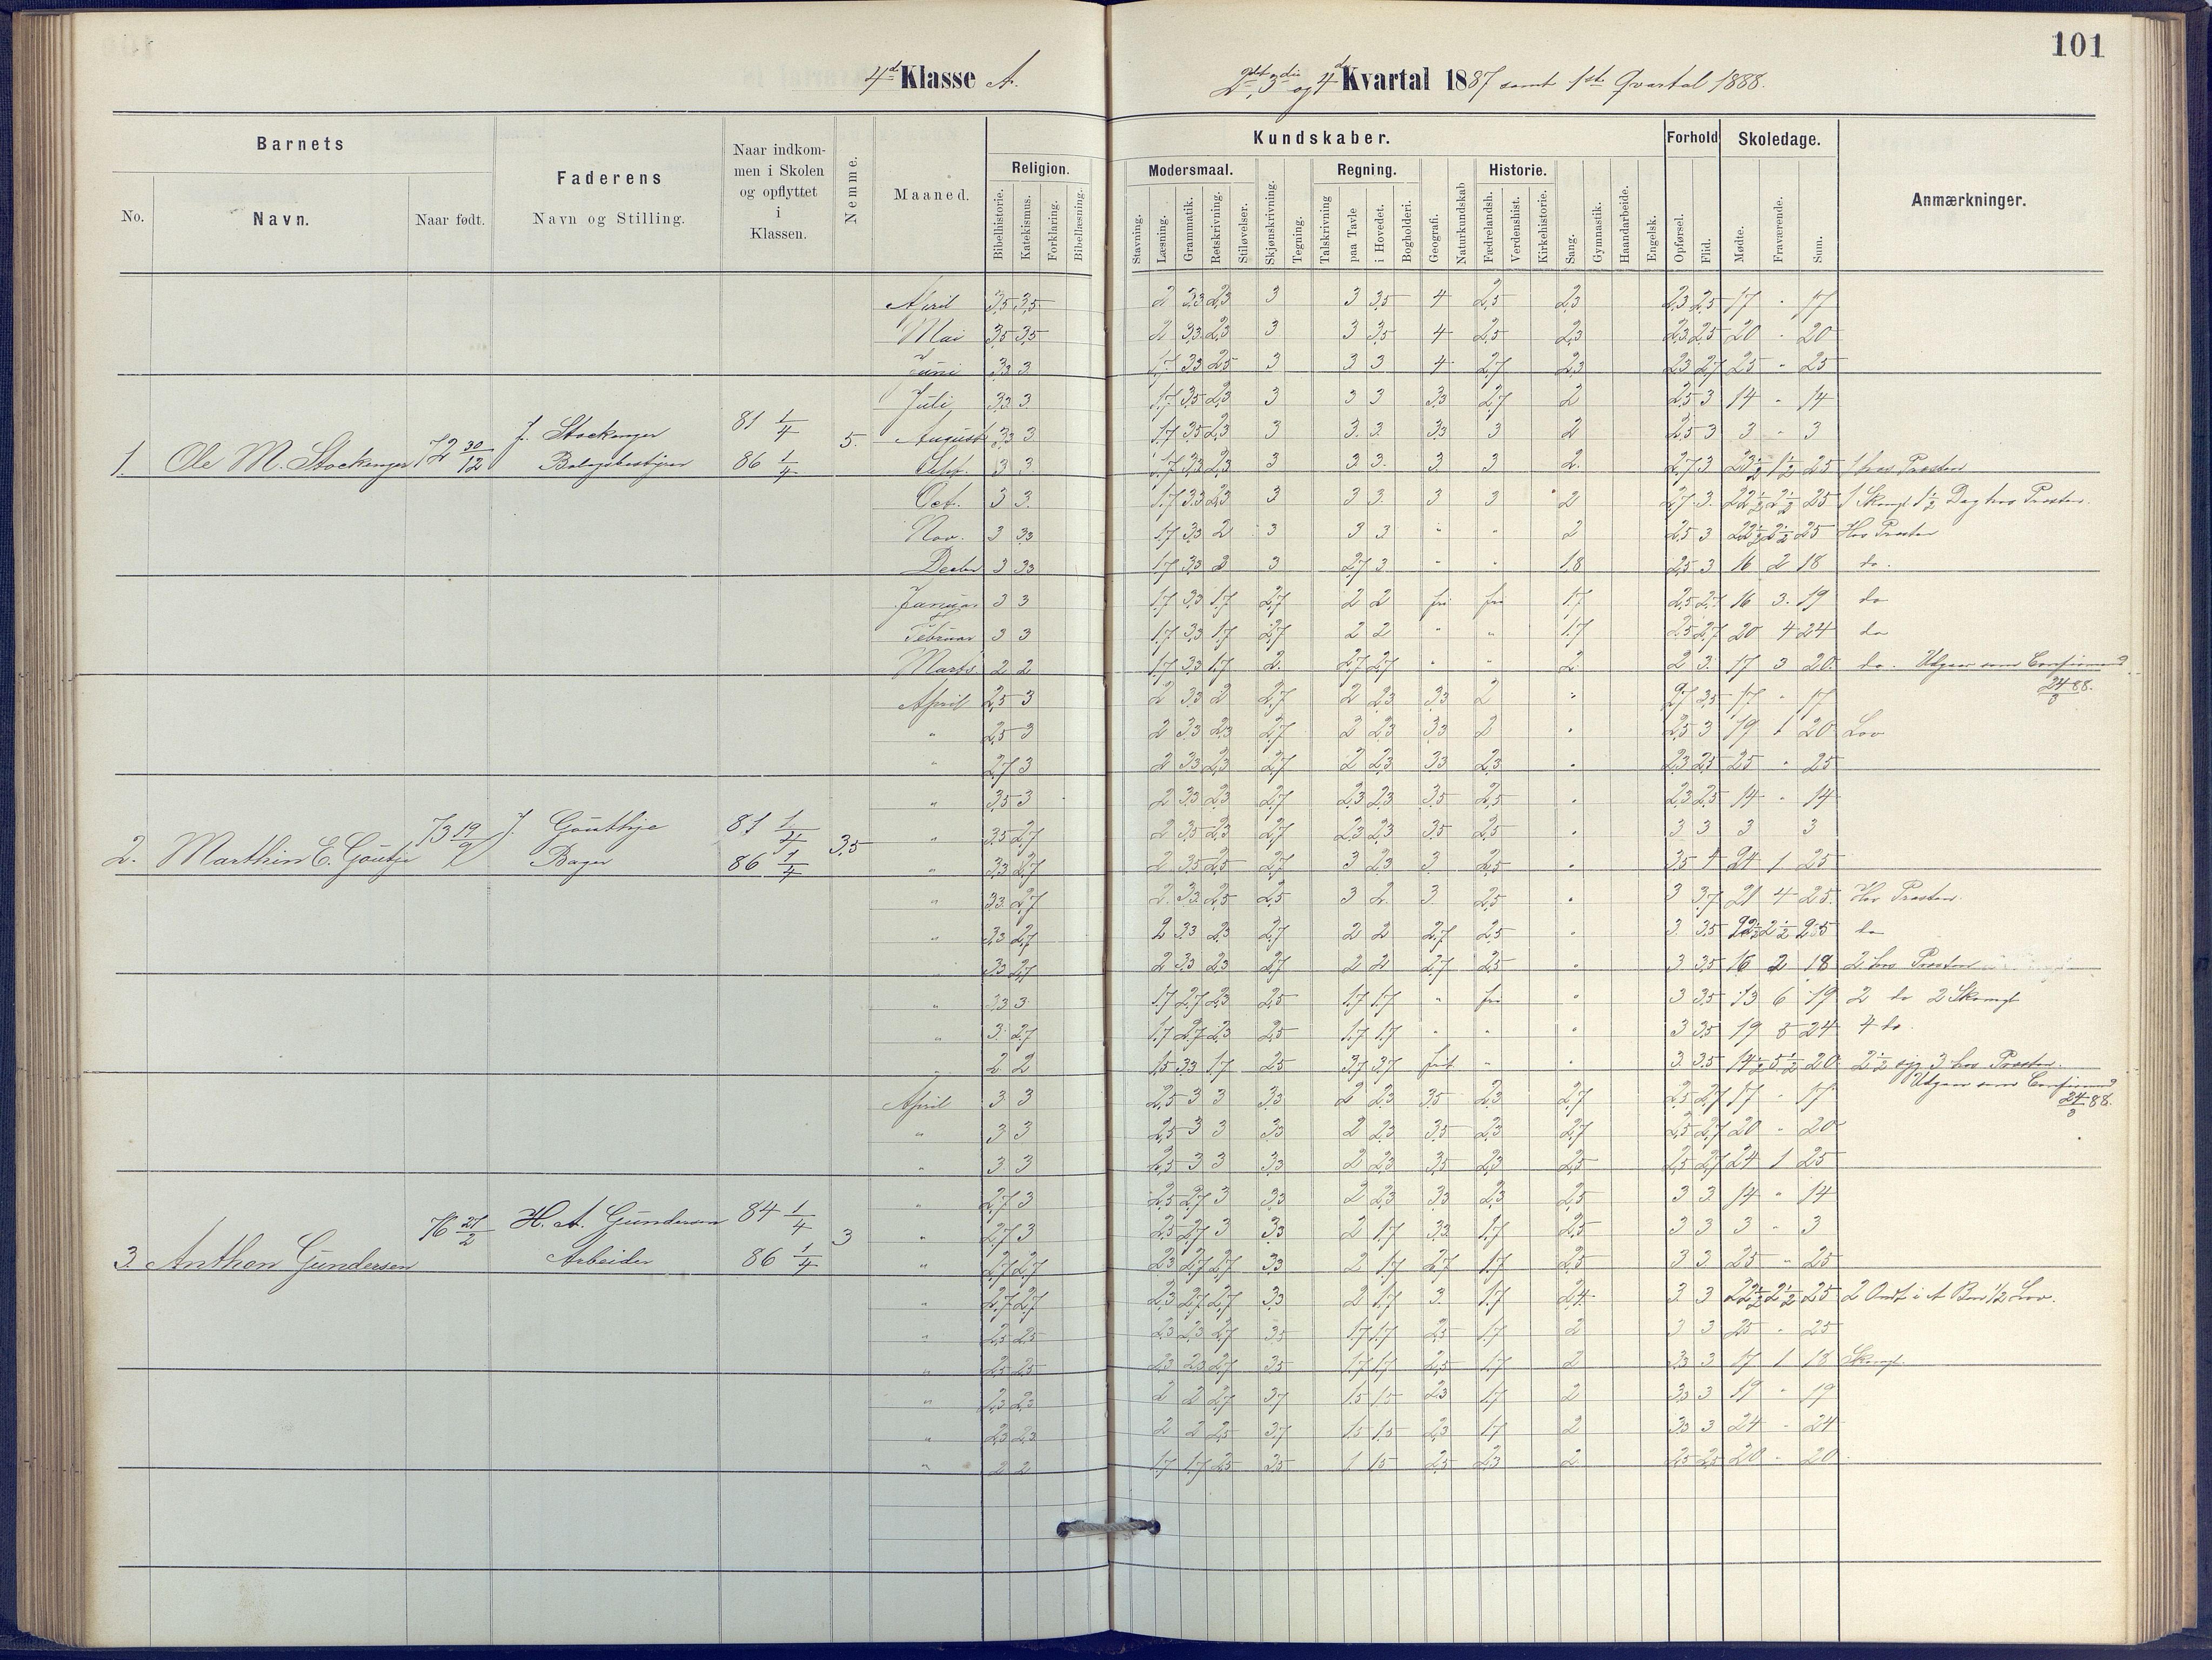 101
4d Klasse A.
2det, 3die og 4de Kvartal 1887 samt 1ste Qvartal 1888.
Barnets
No.
Navn.
Naar født.
Faderens
Navn og Stilling.
Naar indkom-
men i Skolen
og opflyttet
i
Klassen.
Nemme.
Maaned.
Kundskaber.
Religion.
Bibelhistorie.
Katekismus.
Forklaring.
Bibellæsning.
Modersmaal.
Stavning.
Læsning.
Grammatik.
Retskrivning.
Stiløvelser.
Skjønskrivning.
Tegning.
Regning.
Talskrivning
paa Tavle
i Hovedet.
Bogholderi.
Geografi.
Naturkundskab
Historie.
Fædrelandsh.
Verdenshist.
Kirkehistorie.
Sang.
Gymnastik.
Haandarbeide.
Engelsk.
Forhold
Opførsel.
Flid.
Skoledage.
Mødte.
Fraværende.
Sum.
Anmærkninger.
1. Ole M. Stockinger 72 30/12 J. Stockinger 81 1/4 86 1/4 5.
April 3,5 3,5 2 3,3 2,3 3 3 3,5 4 2,5 2,3 2,3 2,5 17 " 17
Mai 3,5 3,5 2 3,3 2,3 3 3 3,5 4 2,5 2,3 2,3 2,5 20 " 20
Juni 3,3 3 1,7 3,3 2,5 3 3 3 4 2,7 2,3 2,3 2,7 25 " 25
Juli 3,3 3 1,7 3,5 2,3 3 3 3 3,3 2,7 2 2,5 3 14 " 14
August 3,3 3 1,7 3,5 2,3 3 3 3 3,3 3 2 2,5 3 3 " 3
Sept. 3 3 1,7 3,3 2,3 3 3 3 3 3 2 2,7 3 23 1/2 1 1/2 25 1 hos Presten
Oct. 3 3 1,7 3,3 2,3 3 3 3 3 3 2 2,7 3 22 1/2 2 1/2 25 1 Skomgt 1 1/2 Dag hos Presten.
Nov. 3 3,3 1,7 3,3 2 3 3 3 " " 2 2,5 3 22 1/2 2 1/2 25 Hos Presten
Decbr 3 3,3 1,7 3,3 2 3 2,7 3 " " 1,8 2,5 3 16 2 18 do.
Januar 3 3 1,7 3,3 1,7 2,7 2 2 fri fri 1,7 2,5 2,7 16 3 19 do
Februar 3 3 1,7 3,3 1,7 2,7 2 2 " " 1,7 2,5 2,7 20 4 24 do
Marts 2 2 1,7 3,3 1,7 2 2,7 2,7 " " 2 2 3 17 3 20 do. Udgaar som Confirmand
24/3 88.
2. Marthin E. Goutije 73 19/9 J. Gouthje Bager 81 1/4 86 1/4 3,5
April 2,5 3 2 3,3 2 2,7 2 2,3 3,3 2 " 2,7 3,5 17 " 17
" 2,5 3 2 3,3 2,3 2,7 2 2,3 3,3 2 " 2,5 3 19 1 20 Lov
" 2,7 3 2 3,3 2,3 2,7 2 2,3 3,3 2,3 " 2,3 2,5 25 " 25
" 3,5 3 2 3,3 2,3 2,7 2,3 2,3 3,5 2,5 " 2,3 2,5 14 " 14
" 3,5 2,7 2 3,5 2,3 2,7 2,3 2,3 3,5 2,5 " 3 3 3 3
" 3,3 2,7 2 3,5 2,5 2,7 3 2,3 3 2,5 " 3,5 4 24 1 25
" 3,3 2,7 2 3,3 2,5 2,5 3 2 3 2,5 " 3 3,7 21 4 25 Hos Presten.
" 3,3 2,7 2 3,3 2,3 2,7 2 2 2,7 2,5 " 3 3,5 22 1/2 2 1/2 25 do
3,3 2,7 2 3,3 2,3 2,7 2 2 2,7 2,5 " 3 3,5 16 2 18 2 hos Presten
" 3,3 3 1,7 2,7 2,3 2,5 1,7 1,7 " fri " 3 3,5 13 6 19 2 do 2 Skomgt
" 3 2,7 1,7 2,7 2,3 2,5 1,7 1,7 " " " 3 3,5 19 5 24 4 do.
" 2 2 1,5 3,3 1,7 2,5 3,7 3,7 frit " " 3 3,5 14 1/2 5 1/2 20 2 1/2 syg 3 hos Presten.
Udgaar som Confirmand
24/3 88.
3. Anthon Gundersen 76 21/2 H. A. Gundersen Arbeider 84 1/4 86 1/4 3
April 3 3 2,5 3 3 3,3 2 2,3 3,5 2,3 2,7 2,5 2,7 17 " 17
" 3 3 2,5 3 3 3,3 2 2,3 3,5 2,3 2,7 2,5 2,7 20 " 20
" 3 3 2,5 3 3 3,3 2 2,3 3,5 2,3 2,5 2,5 2,7 24 1 25
" 2,7 3 2,5 2,7 3 3,3 2 2,3 3,3 2,3 2,5 3 3 14 " 14
" 2,7 3 2,5 2,7 3 3,3 2 1,7 3,3 1,7 2,5 3 3 3 " 3
" 2,7 2,7 2,3 2,7 2,7 3,3 2 1,7 2,7 1,7 2,5 3 3 25 " 25
" 2,7 2,7 2,3 2,7 2,7 3,3 2 1,7 3 1,7 2,4 3 3 22 1/2 2 1/2 25 1/2 Lov.
" 2,5 2,5 2,3 2,3 2,7 3,5 1,7 1,7 2,5 1,7 2 3 3 25 " 25
" 2,5 2,5 2,3 2,3 2,7 3,5 1,7 1,7 2,5 1,7 2 3,3 3 17 1 18 Skomgt.
" 2,3 2,3 2 2 2,7 3,7 1,5 1,5 2,3 1,7 2 3,3 3 19 " 19
" 2,3 2,3 2 2 2,5 3,7 1,5 1,5 2,3 1,7 2 3,3 3 24 " 24
" 2 2 1,7 1,7 2,5 3,5 1 1,5 2,5 2,3 2 2,5 2,5 20 " 20